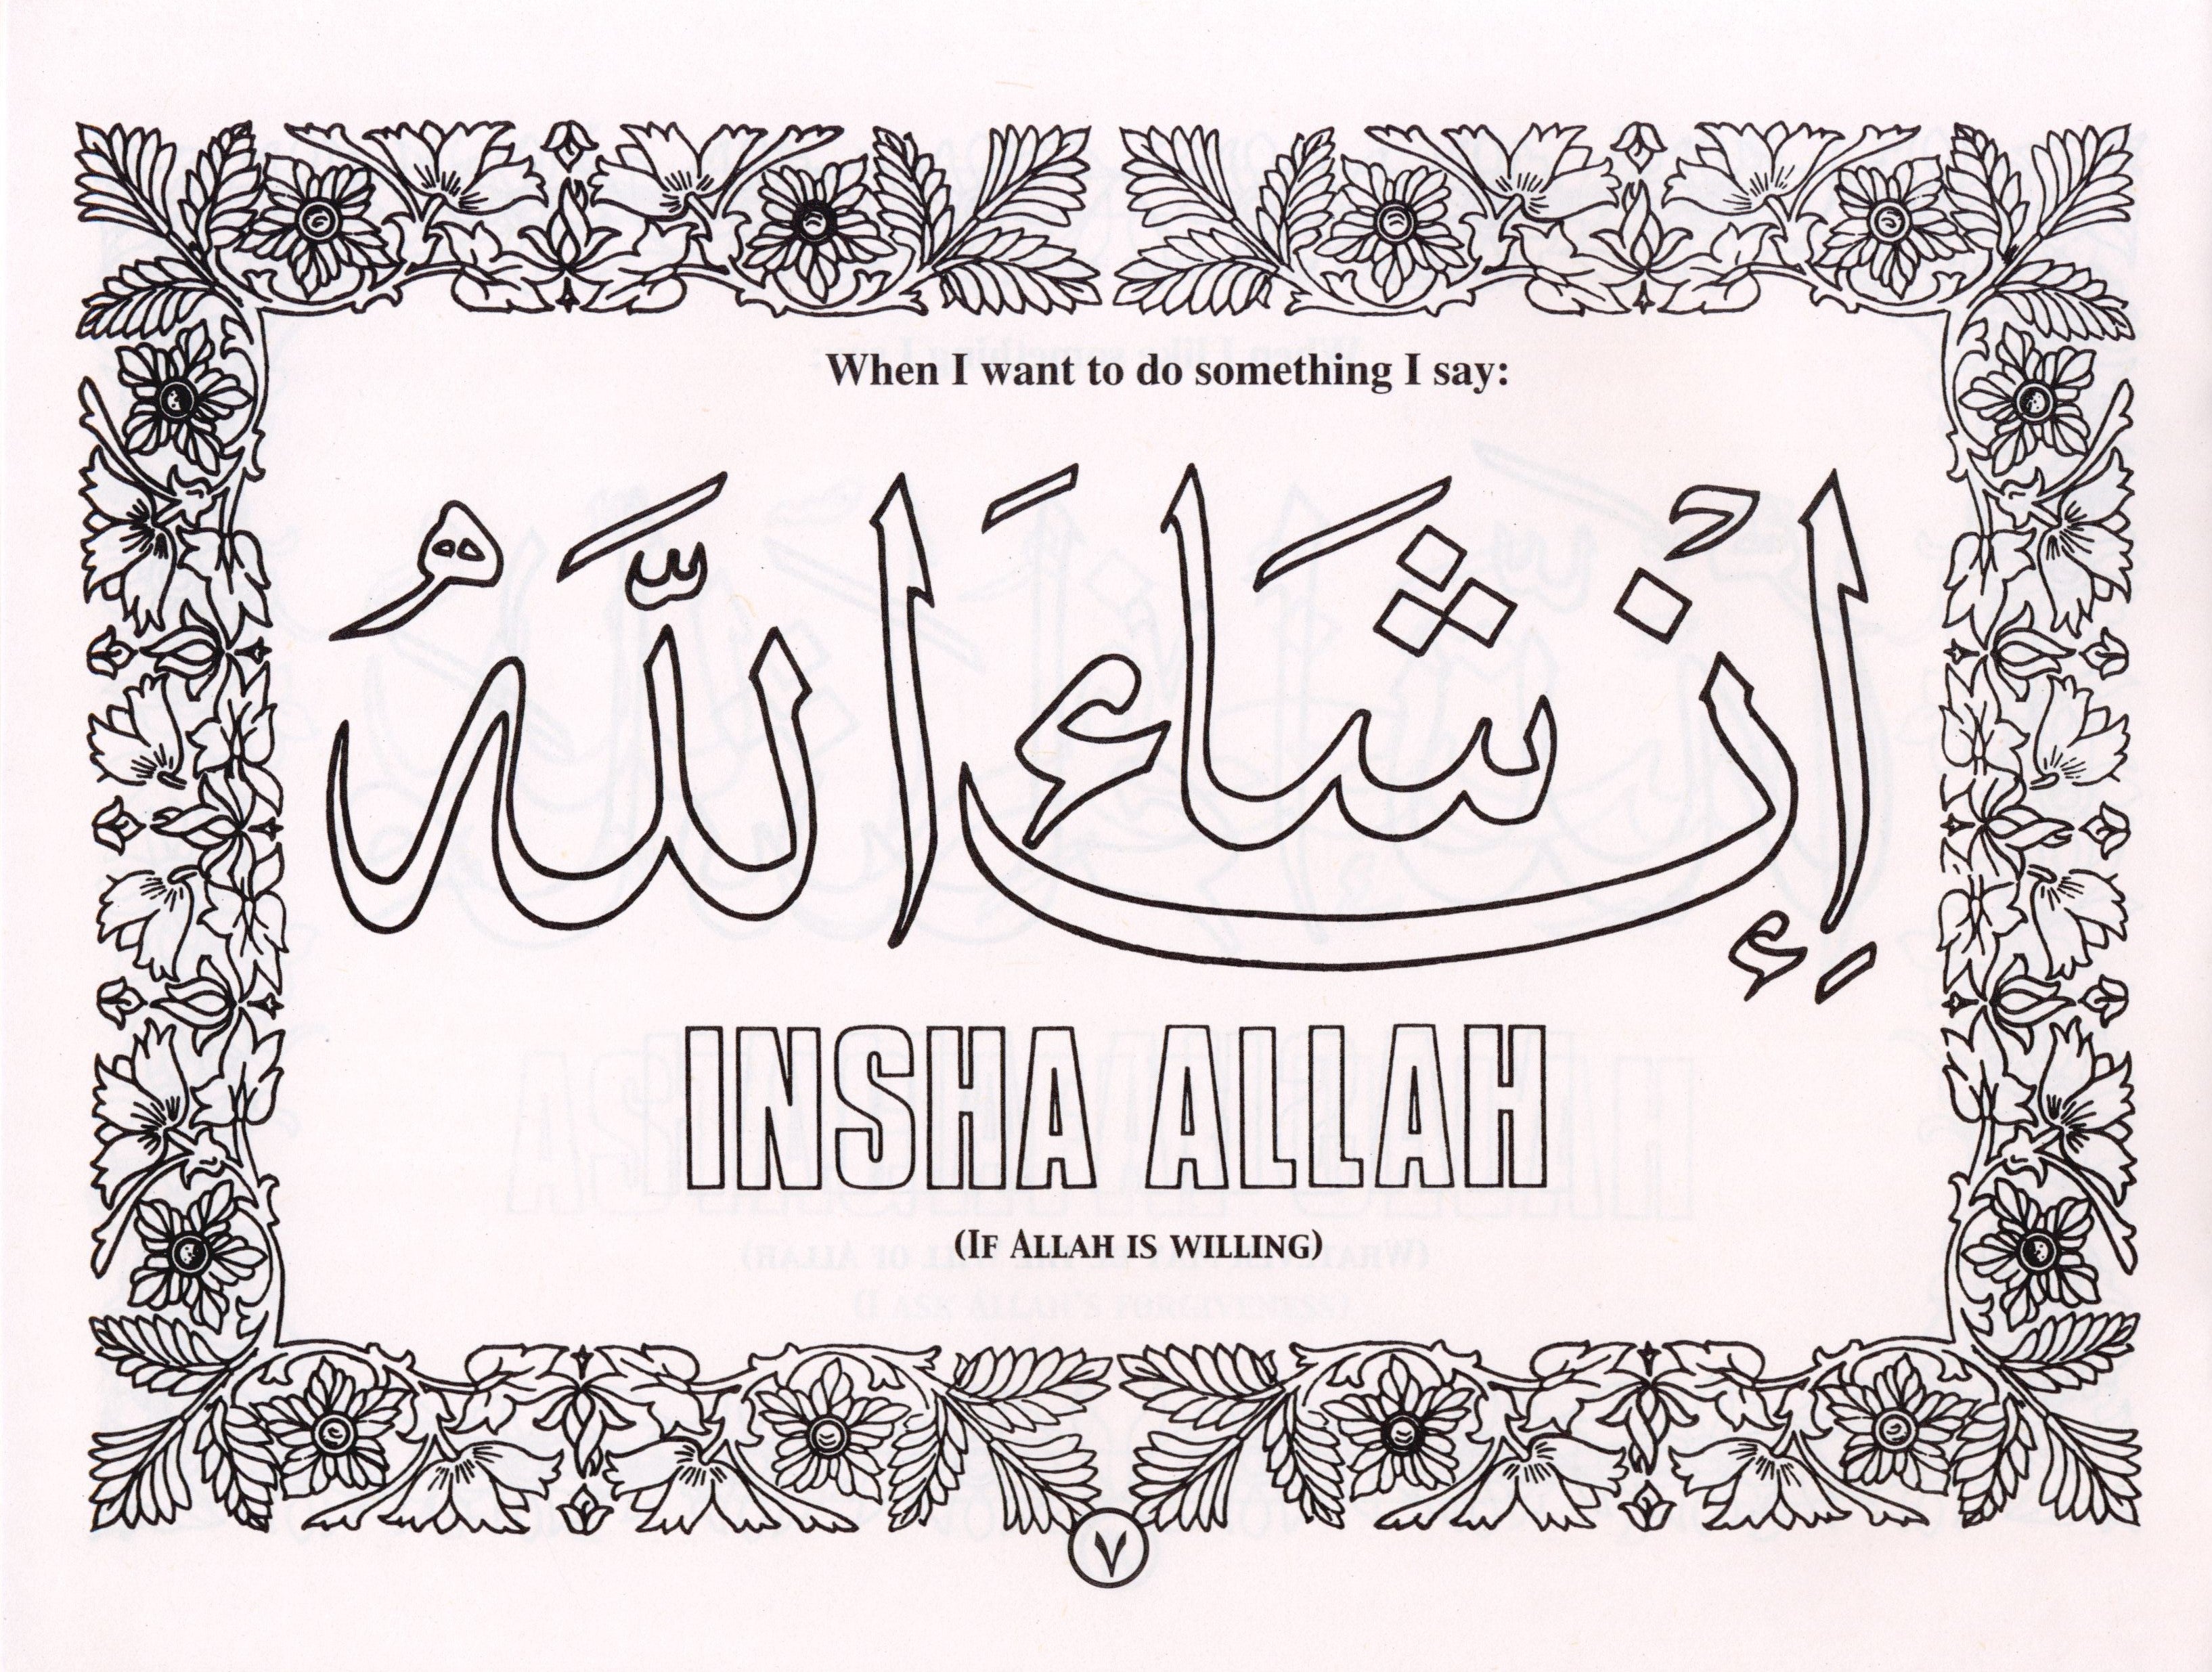 When I want to do something I say:
اِنْ شَاءَ اللّٰهُ
INSHA ALLAH
(IF ALLAH IS WILLING)
٧